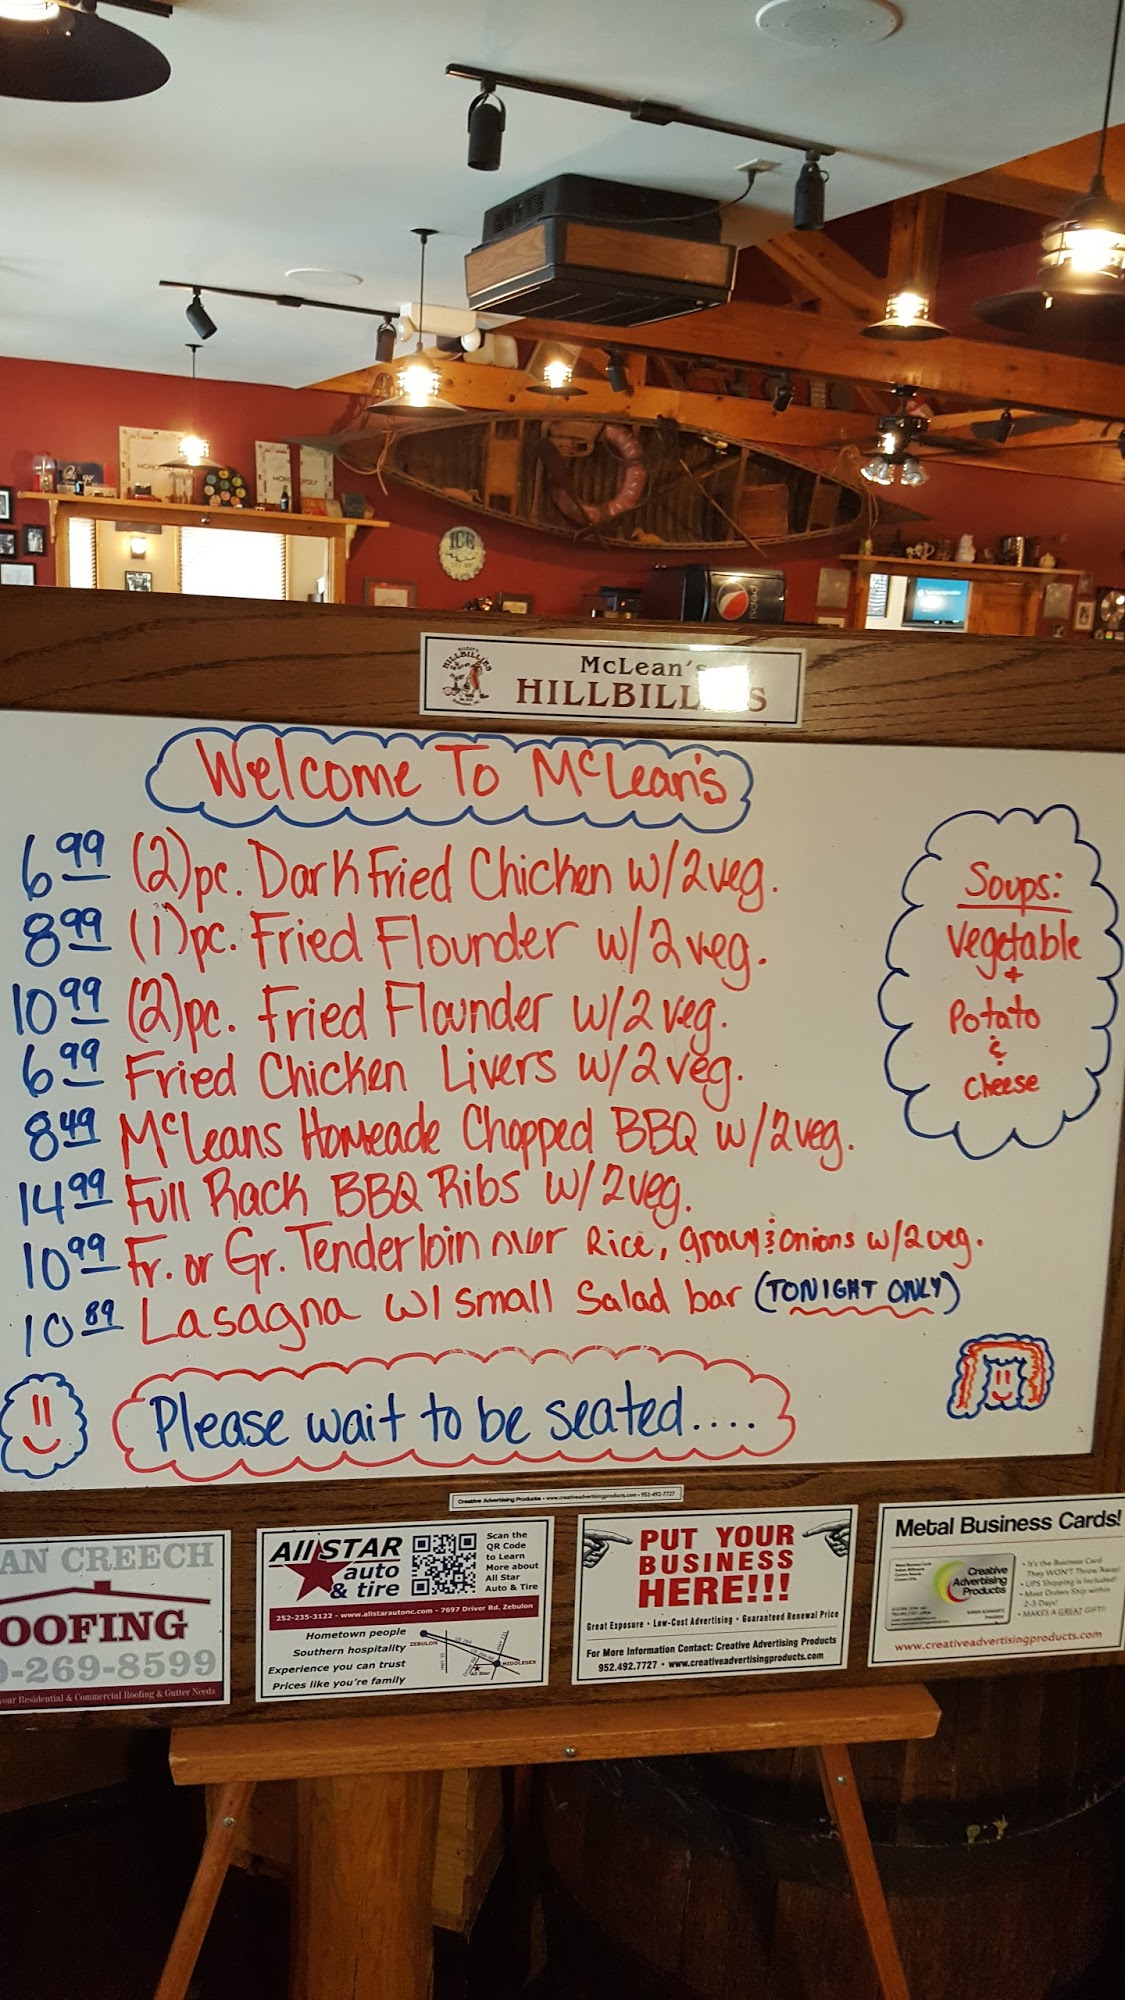 MONOPOLY
pepsi
HILLBILLIES
McLean's
HILLBILLIES
Welcome To McLean's
6.99 (2)pc. Dark Fried Chicken w/2veg.
8.99 (1)pc. Fried Flounder w/2veg.
10.99 (2)pc. Fried Flounder w/2veg.
6.99 Fried Chicken Livers w/2veg.
8.49 McLeans Homeade Chopped BBQ w/2veg.
14.99 Full Rack BBQ Ribs w/2veg.
10.99 Fr. or Gr. Tenderloin over Rice, gravy & onions w/2veg.
10.89 Lasagna w/ small Salad bar (TONIGHT ONLY)
Soups:
Vegetable
+
Potato
&
Cheese
Please wait to be seated....
Creative Advertising Products • www.creativeadvertisingproducts.com • 952-492-7727
AN CREECH
OOFING
-269-8599
your Residential & Commercial Roofing & Gutter Needs
All STAR
auto
& tire
Scan the
QR Code
to Learn
More about
All Star
Auto & Tire
252-235-3122 - www.allstarautonc.com - 7697 Driver Rd. Zebulon
Hometown people
Southern hospitality
Experience you can trust
Prices like you're family
ZEBULON
MIDDLESEX
PUT YOUR
BUSINESS
HERE!!!
Great Exposure • Low-Cost Advertising • Guaranteed Renewal Price
For More Information Contact: Creative Advertising Products
952.492.7727 • www.creativeadvertisingproducts.com
Metal Business Cards!
Creative
Advertising
Products
• It's the Business Card
They WON'T Throw Away!
• UPS Shipping is Included!
• Most Orders Ship within
2-3 Days!
• MAKES A GREAT GIFT!!
www.creativeadvertisingproducts.com